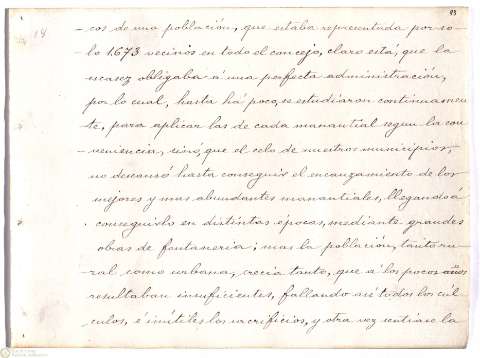 93
14
- cos de una población, que estaba representada por so-
- lo 1.673 vecinos en todo el concejo, claro está, que la
escasez obligaba á una perfecta administración,
por lo cual, hasta há poco, se estudiaron continuamen
te, para aplicar las de cada manantial segun la con
veniencia, sinó, que el celo de nuestros municipios,
no descansó hasta conseguir el encauzamiento de los
mejores y mas abundantes manantiales, llegando á
conseguirlo en distintas épocas, mediante grandes
obras de fontanería; mas la población, tanto ru-
ral como urbana, crecia tanto, que á los pocos años
resultaban insuficientes, fallando asi todos los cál-
culos, é inútiles los sacrificios, y otra vez sentiase la